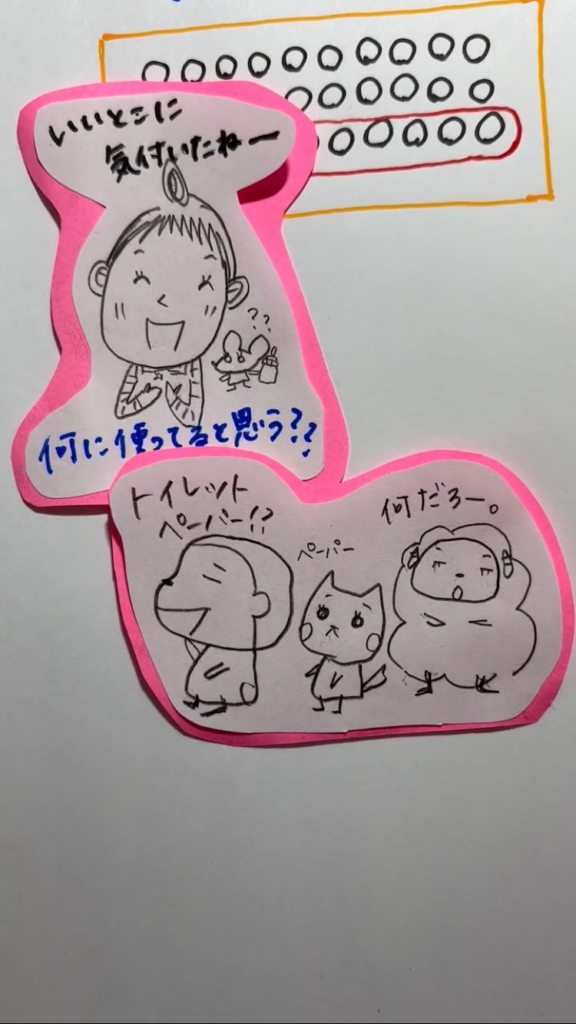 いいとこに
気付いたねー
??
何に使ってると思う??
トイレット
ペーパー!?
ペーパー
何だろー。